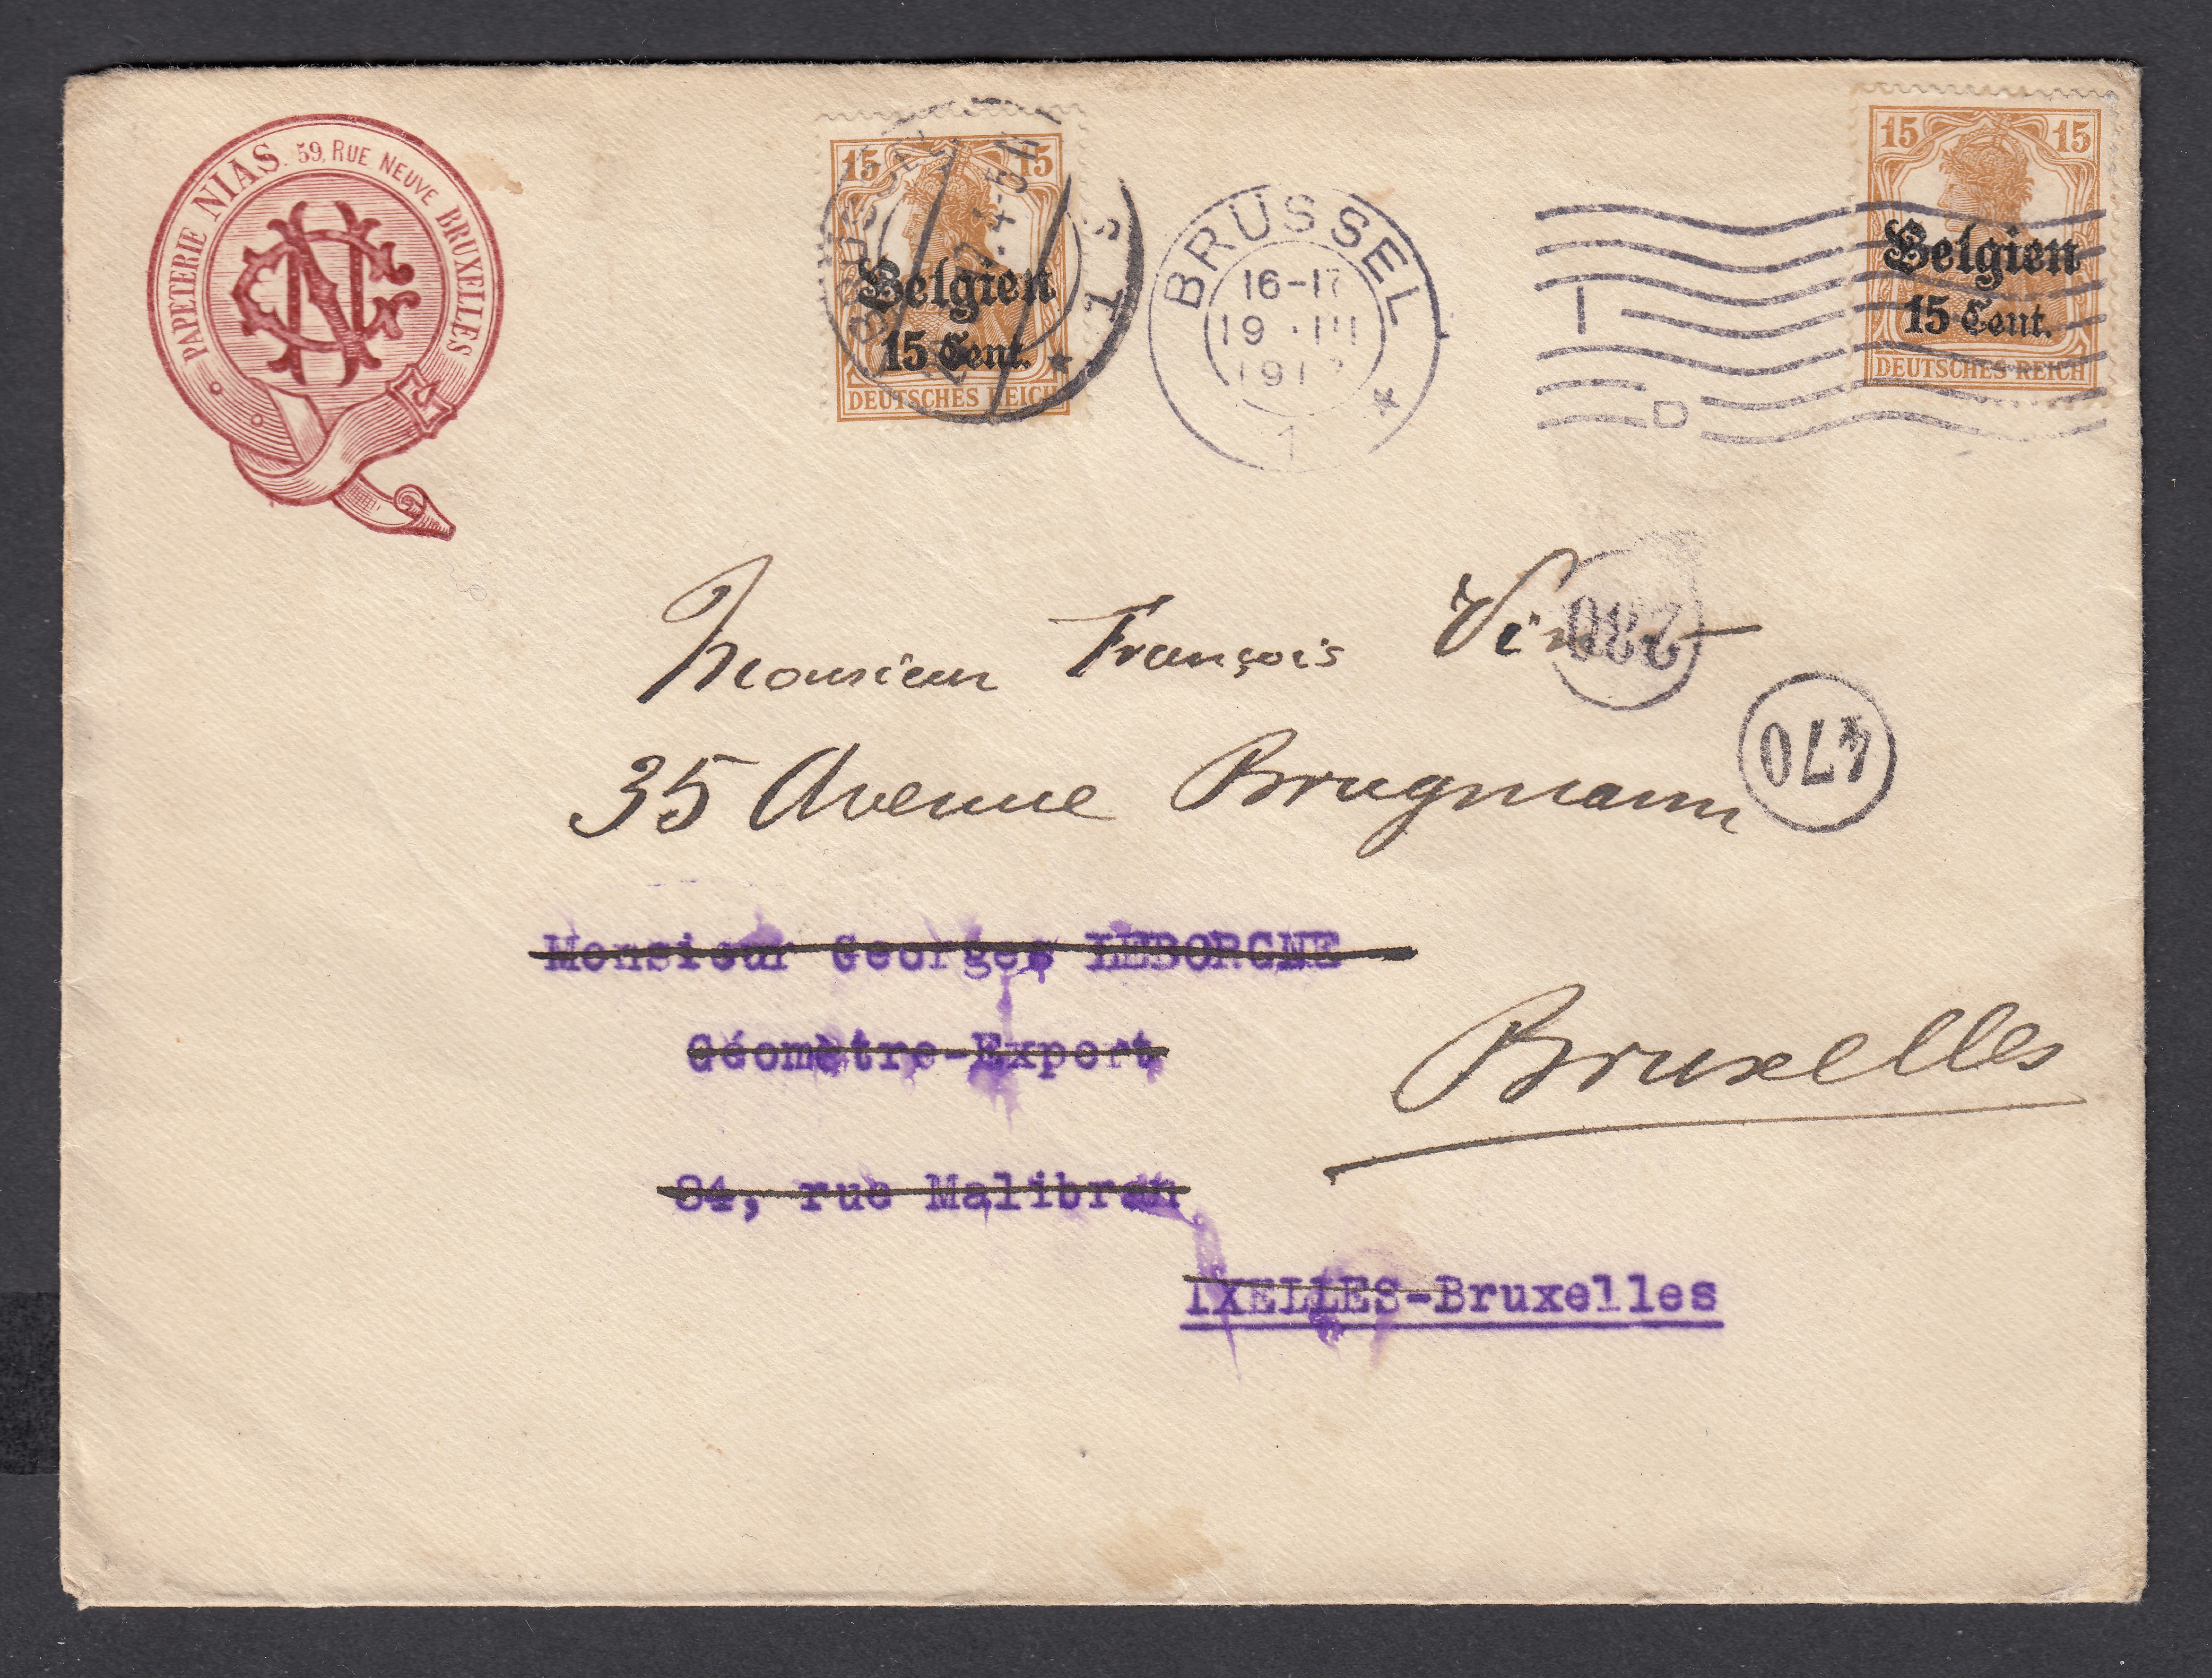 PAPETERIE NIAS. 59, RUE NEUVE BRUXELLES
NC
15 15
Belgien
15 Cent.
DEUTSCHES REICH
BRÜSSEL
16-17
19 ·III
1
15 15
Belgien
15 Cent.
DEUTSCHES REICH
D
Monsieur François
230
35 Avenue Brugmann
470
Monsieur Georges LEBORGNE
Géomètre-Expert
Bruxelles
84, rue Malibran
IXELLES-Bruxelles